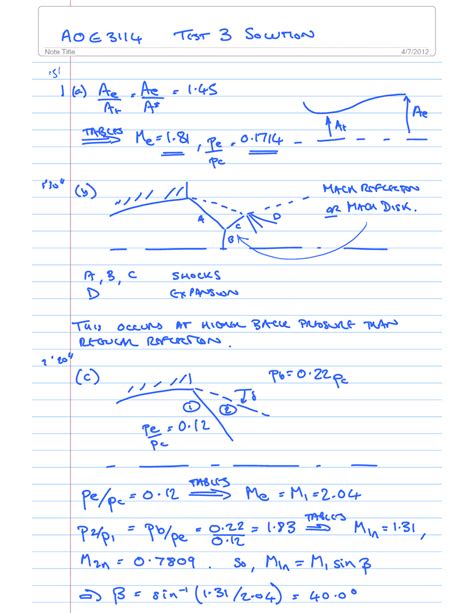 AOE 3114 TEST 3 SOLUTION
Note Title 4/7/2012
1 (a) Ae/At = Ae/A* = 1.45
At Ae
TABLES ⟹ Me = 1.81, pe/pc = 0.1714
1'30" (b) MACH REFLECTION
OR MACH DISK.
A C D
B
A, B, C SHOCKS
D EXPANSION
THIS OCCURS AT HIGHER BACK PRESSURE THAN
REGULAR REFLECTION.
2'20"
(c) pb = 0.22 pc
① ② δ
pe/pc = 0.12
pe/pc = 0.12 TABLES ⟹ Me = M1 = 2.04
p2/p1 = pb/pe = 0.22/0.12 = 1.83 TABLES ⟹ M1n = 1.31,
M2n = 0.7809. So, M1n = M1 sin β
⇒ β = sin⁻¹ (1.31/2.04) = 40.0°